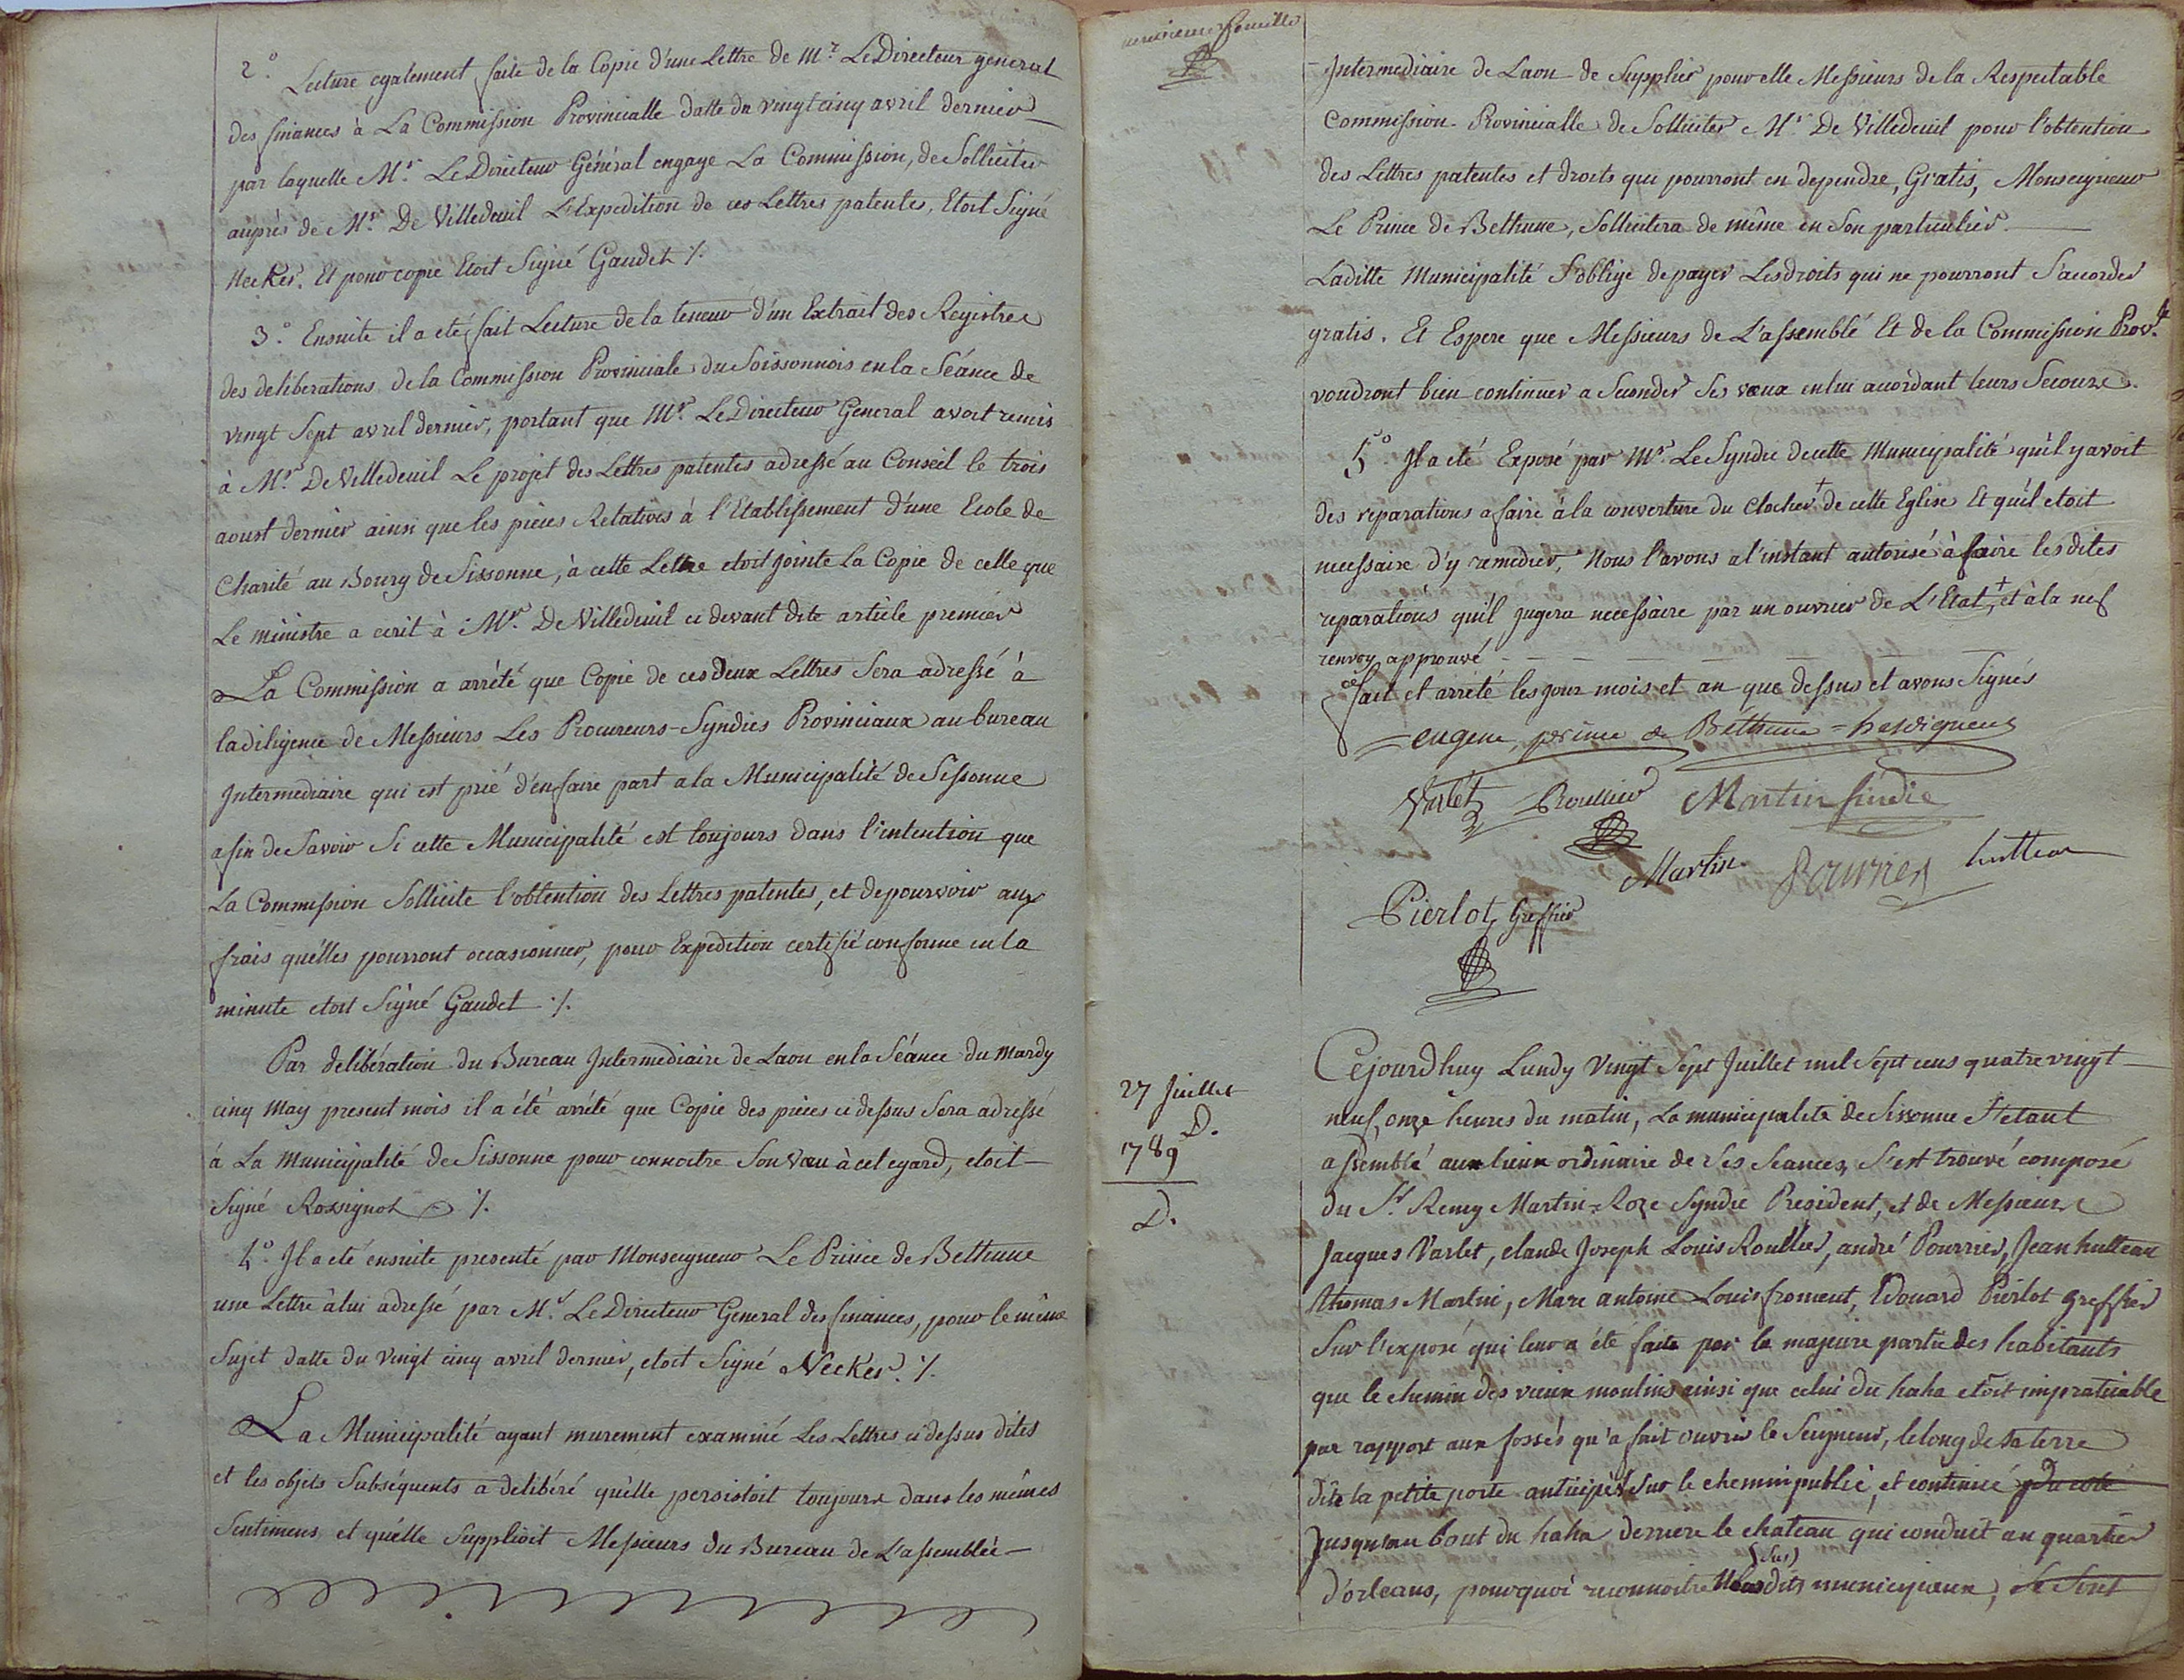 2.° Lecture egalement faite de la Copie d'une Lettre de Mr. Le Directeur general
des finances à La Commission Provincialle datte du vingt cinq avril dernier
par laquelle Mr. Le Directeur Général engage La Commission, de Solliciter
auprès de Mr. De Villedeuil L'Expedition de ces Lettres patentes, Etoit Signé
Necker. Et pour copie Etoit Signé Gaudet ./.
3.° Ensuite il a eté fait Lecture de la teneur d'un Extrait des Registres
des deliberations de la Commission Provinciale du Soissonnois en la Séance de
vingt Sept avril dernier, portant que Mr. Le Directeur General avoit remis
à Mr. De Villedeuil Le projet des Lettres patentes adressé au Conseil le trois
aoust dernier ainsi que les pieces Relatives à l'Etablissement d'une Ecole de
Charité au Bourg de Sissonne, à cette Lettre etoit jointe La Copie de celle que
Le ministre a ecrit à Mr. De Villedeuil ci devant dite article premier
La Commission a arrêté que Copie de ces Deux Lettres Sera adressé à
la diligence de Messieurs Les Procureurs-Syndics Provinciaux au bureau
Intermediaire qui est prié d'en faire part a la Municipalité de Sissonne
afin de Savoir Si cette Municipalité est toujours dans l'intention que
La Commission Sollicite l'obtention des Lettres patentes, et de pourvoir aux
frais qu'elles pourront occasionner, pour Expedition certifié conforme en la
minute etoit Signé Gaudet ./.
Par delibération du Bureau Intermediaire de Laon en la Séance du Mardy
cinq May present mois il a été arrêté que Copie des pieces ci dessus Sera adressé
à La Municipalité de Sissonne pour connoitre Son Vœu à cet egard, etoit
Signé Rossignol ./.
4.° Il a eté ensuite presenté par Monseigneur Le Prince de Bethune
une Lettre à lui adressé par Mr. Le Directeur General des finances, pour le même
Sujet datte du vingt cinq avril dernier, etoit Signé Necker. ./.
La Municipalité ayant murement examiné Les Lettres ci dessus dites
et les objets Subséquents a delibéré qu'elle persistoit toujours dans les mêmes
Sentimens, et qu'elle Supplioit Messieurs du Bureau de L'assemblée
feuille
Intermediaire de Laon de Supplier pour elle Messieurs de la Respectable
Commission Provincialle de Solliciter Mr. De Villedeuil pour l'obtention
des Lettres patentes et droits qui pourront en dependre, Gratis, Monseigneur
Le Prince de Bethune, Sollicitera de même en Son particulier.
Laditte Municipalité S'oblige de payer Les droits qui ne pourront S'accorder
gratis. Et Espere que Messieurs de L'assemblé Et de la Commission Prov.le
voudront bien continuer a Seconder Ses vœux en lui accordant leurs Secours.
5.° Il a eté Exposé par Mr. Le Syndic de cette Municipalité qu'il y avoit
des reparations a faire à la couverture du Clocher + de cette Eglise Et qu'il etoit
necessaire d'y remedier, Nous l'avons a l'instant autorisé à faire les dites
reparations qu'il jugera necessaire par un ouvrier de L'Etat, + et à la nef
renvoy approuvé
ce fait et arrêté les jour mois et an que dessus et avons Signés
eugene, prince de Bethune = hesdigneul
Varlet Roullier Martin Sindic
Martin Pourrier hutteau
Pierlot Greffier
27 Juillet
D.
1789
D.
Cejourdhuy Lundy Vingt Sept Juillet mil Sept cens quatre vingt
neuf, onze heures du matin, La municipalité de Sissonne S'etant
assemblé aux lieux ordinaire de Ses Seances, S'est trouvé composé
du Sr. Remy Martin-Roze Syndic President, et de Messieurs
Jacques Varlet, claude Joseph Louis Roullier, andré Pourrier, Jean hutteau
thomas Martin, Marc antoine Louis froment, Edouard Pierlot Greffier
Sur l'exposé qui leur a été faite par la majeure partie des habitants
que le chemin des vieux moulins ainsi que celui du haha etoit impraticable
par rapport aux fossés qu'a fait ouvrir le Seigneur, le long de Sa terre
dite la petite porte anticipés Sur le chemin public, et continué du coté
Jusqu'au bout du haha derriere le chateau qui conduit au quartier
d'orleans, pourquoi reconnoitre Nous (Sus) dits municipaux, Se Sont